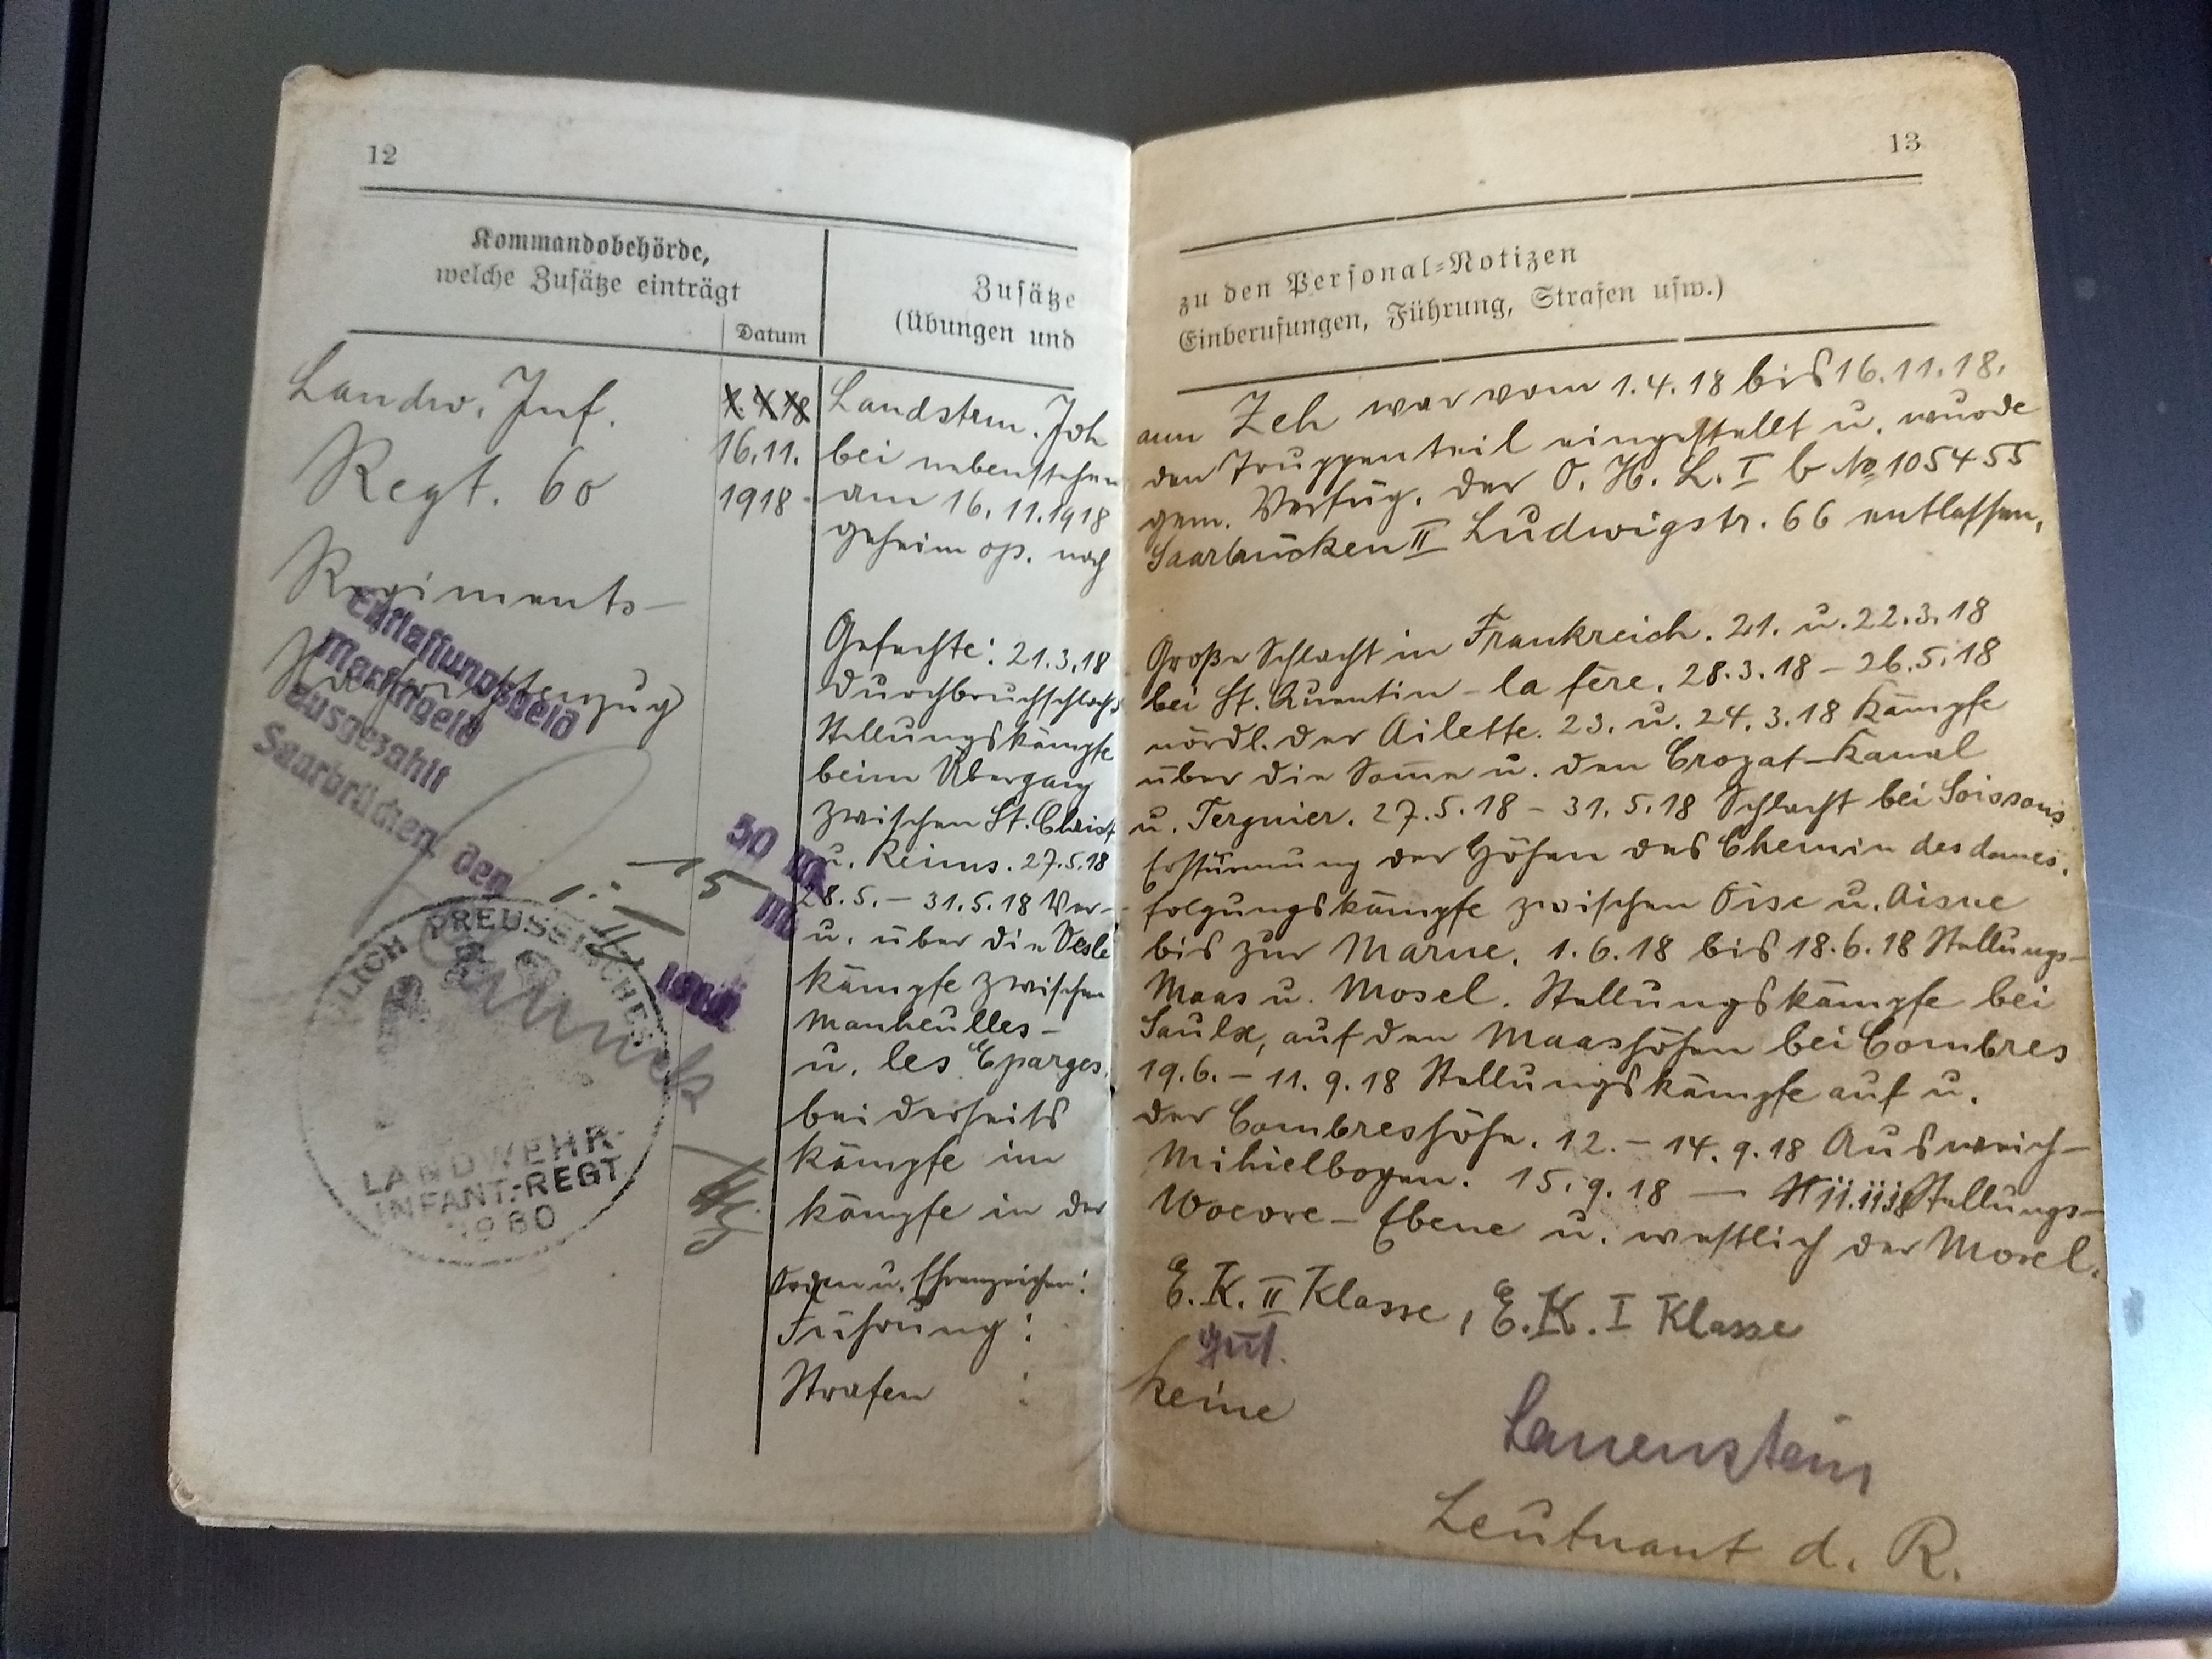 12
Kommandobehörde,
welche Zusätze einträgt
Datum
Zusätze
(Übungen und
Landw. Inf.
Regt. 60
Regiments-
16.11.
1918.
Entlassungsgeld
Marschgeld
ausgezahlt
Saarbrücken, den
50 Mk
15 Mk
PREUSSISCHES
LANDWEHR-
INFANT.-REGT
No 60
Landstrm. Joh
bei nebenstehen
am 16.11.1918
Gefechte: 21.3.18
Durchbruchschlacht
Stellungskämpfe
beim Übergang
zwischen St. Christ
u. Reims. 27.5.18
28.5. – 31.5.18 Ver-
u. über die Vesle
kämpfe zwischen
Manheulles-
u. les Eparges.
beiderseits
kämpfe im
kämpfe in der
Orden u. Ehrenzeichen:
Führung:
Strafen :
13
zu den Personal-Notizen
Einberufungen, Führung, Strafen usw.)
ann Zeh war vom 1.4.18 bis 16.11.18.
den Truppenteil eingestellt u. wurde
gem. Verfüg. der O. H. L. I b No 105455
Saarbrücken II Ludwigstr. 66 entlassen.
Große Schlacht in Frankreich. 21. u. 22.3.18
bei St. Quentin – la fère. 28.3.18 – 26.5.18
nördl. der Ailette. 23. u. 24.3.18 Kämpfe
über die Somme u. den Crozat-Kanal
u. Tergnier. 27.5.18 – 31.5.18 Schlacht bei Soissons
Erstürmung der Höhen des Chemin des dames.
folgungskämpfe zwischen Oise u. Aisne
bis zur Marne. 1.6.18 bis 18.6.18 Stellungs-
Maas u. Mosel. Stellungskämpfe bei
Saulx, auf den Maashöhen bei Combres
19.6. – 11.9.18 Stellungskämpfe auf u.
der Combreshöhe. 12. – 14.9.18 Ausweich-
Mihielbogen. 15.9.18 – 11.11.18 Stellungs-
Woevre-Ebene u. westlich der Mosel.
E.K. II Klasse, E.K. I Klasse
gut.
keine
Lauenstein
Leutnant d. R.